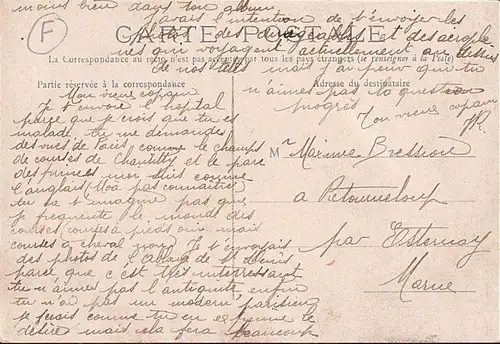 moins bien dans ton album.
j'avais l'intention de t'envoyer les
photos des dirigeables et des aeropla
nes qui voyagent actuellement au dessus
de nos têtes mais j'ai peur que tu
n'aimes pas la question
progrès
Ton vieux copain
F
CARTE POSTALE
La Correspondance au recto n'est pas acceptée par tous les pays étrangers (se renseigner à la Poste)
Partie réservée à la correspondance
Adresse du destinataire
Mon vieux copain
Je t'envoie l'hopital
parce que je crois que tu es
malade tu me demandes
des vues de Paris comme le champs
de courses de Chantilly et le parc
des princes moi suis comme
l'anglais (Moâ pas connaitre)
tu ne t'imagine pas que
je frequente le monde des
courses (courses à pieds oui mais
courses à cheval non) Je t'envoyais
des photos de l'abbaye de St Denis
parce que c'est très interressant
tu n'aimes pas l'antiquité enfin
tu n'as pas un modern' parisien
je ferais comme tu en exprime le
désire mais cela fera beaucoup
Mr Maxime Bression
a Retourneloup
par Esternay
Marne